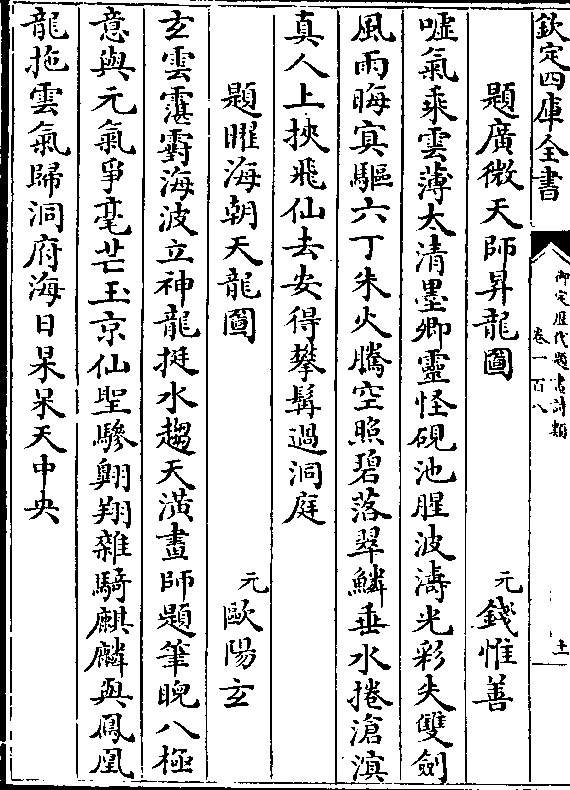 欽定四庫全書
御定歷代題畫詩類
卷一百八
十一
題廣微天師昇龍圖
元 錢惟善
嘘氣乘雲薄太清墨卿靈怪硯池腥波濤光彩失雙劍
風雨晦冥驅六丁朱火騰空照碧落翠鱗垂水捲滄溟
真人上挾飛仙去安得攀髯過洞庭
題曜海朝天龍圖
元 歐陽玄
玄雲霮䨴海波立神龍挺水趨天潢畫師題筆睨八極
意與元氣爭毫芒玉京仙聖驂翺翔雜騎麒麟與鳳凰
龍拖雲氣歸洞府海日杲杲天中央